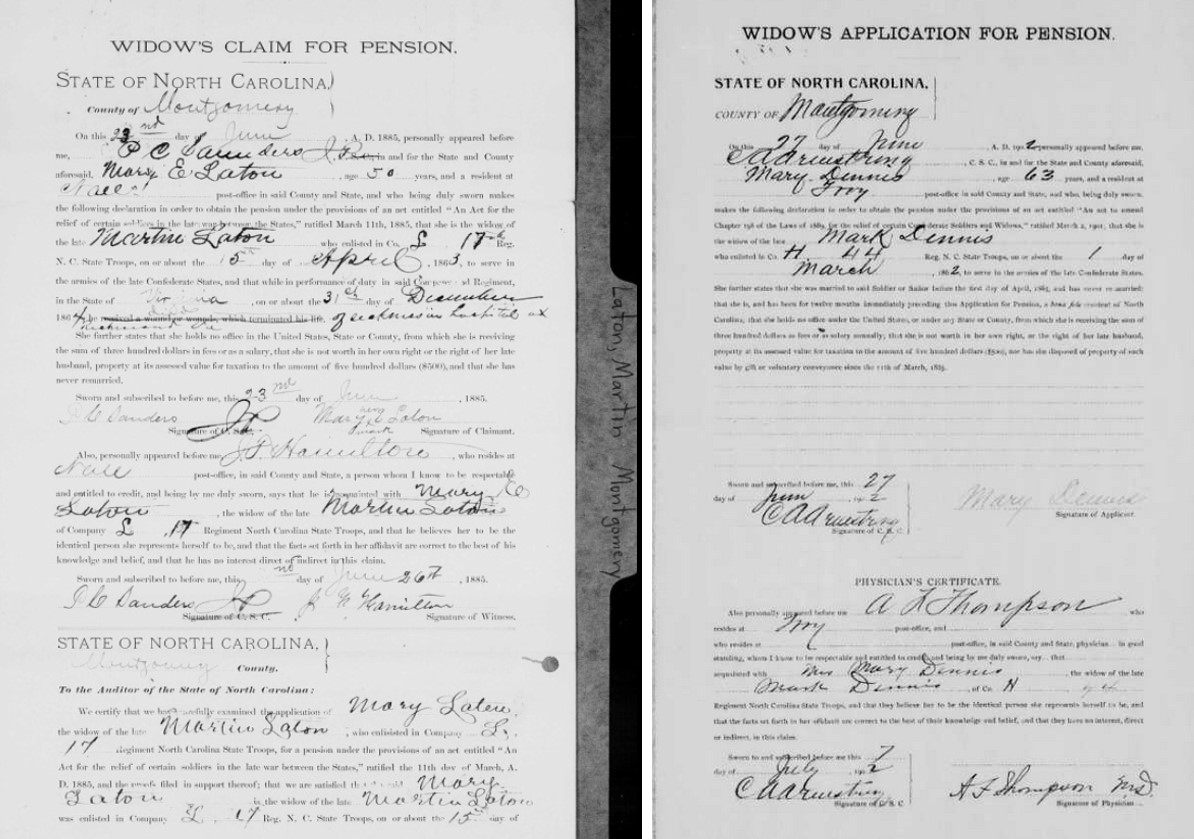 WIDOW'S CLAIM FOR PENSION.
STATE OF NORTH CAROLINA,
County of Montgomery
On this 23 nd day of June, A. D. 1885, personally appeared before
me, P C Saunders J.P. C.S.C., in and for the State and County
aforesaid, Mary E Laton, age 50 years, and a resident at
post-office in said County and State, and who being duly sworn makes
the following declaration in order to obtain the pension under the provisions of an act entitled "An Act for the
relief of certain soldiers in the late war between the States," ratified March 11th, 1885, that she is the widow of
the late Martin Laton who enlisted in Co. 17th Reg.
N. C. State Troops, on or about the 15th day of April, 1863, to serve in
the armies of the late Confederate States, and that while in performance of duty in said Company and Regiment,
in the State of Virginia, on or about the 31st day of December
1864, he received a wound or wounds, which terminated his life, of sickness in hospital at
Richmond Va
She further states that she holds no office in the United States, State or County, from which she is receiving
the sum of three hundred dollars in fees or as a salary, that she is not worth in her own right or the right of her late
husband, property at its assessed value for taxation to the amount of five hundred dollars ($500), and that she has
never remarried.
Sworn and subscribed to before me, this 23 nd day of June, 1885.
P C Sanders JP Mary her x mark Laton
Signature of C. S. C. Signature of Claimant.
Also, personally appeared before me Hamilton, who resides at
post-office, in said County and State, a person whom I know to be respectable
and entitled to credit, and being by me duly sworn, says that he is acquainted with Mary E
Laton, the widow of the late Martin Laton
of Company 17 Regiment North Carolina State Troops, and that he believes her to be the
identical person she represents herself to be, and that the facts set forth in her affidavit are correct to the best of his
knowledge and belief, and that he has no interest direct or indirect in this claim.
Sworn and subscribed to before me, this nd day of June 26th, 1885.
P C Sanders JP Hamilton
Signature of C. S. C. Signature of Witness.
STATE OF NORTH CAROLINA,
Montgomery County.
To the Auditor of the State of North Carolina:
We certify that we have carefully examined the application of Mary Laton,
the widow of the late Martin Laton, who enlisted in Company
17 Regiment North Carolina State Troops, for a pension under the provisions of an act entitled "An
Act for the relief of certain soldiers in the late war between the States," ratified the 11th day of March, A.
D. 1885, and the proofs filed in support thereof; that we are satisfied the said Mary
Laton is the widow of the late Martin Laton
was enlisted in Company 17 Reg. N. C. State Troops, on or about the 15th day of
Laton, Martin Montgomery
WIDOW'S APPLICATION FOR PENSION.
STATE OF NORTH CAROLINA,
COUNTY OF Montgomery
On this 27 day of June, A. D. 1902, personally appeared before me,
C A Armstrong, C. S. C., in and for the State and County aforesaid,
Mary Dennis, age 63 years, and a resident at
Troy post-office in said County and State, and who, being duly sworn,
makes the following declaration in order to obtain the pension under the provisions of an act entitled "An act to amend
Chapter 198 of the Laws of 1889, for the relief of certain Confederate Soldiers and Widows," ratified March 2, 1901, that she is
the widow of the late Mark Dennis
who enlisted in Co. H, 44 Reg. N. C. State Troops, on or about the 1 day of
March, 1862, to serve in the armies of the late Confederate States.
She further states that she was married to said Soldier or Sailor before the first day of April, 1865, and has never re-married;
that she is, and has been for twelve months immediately preceding this Application for Pension, a bona fide resident of North
Carolina, that she holds no office under the United States, or under any State or County, from which she is receiving the sum of
three hundred dollars as fees or as salary annually; that she is not worth in her own right, or the right of her late husband,
property at its assessed value for taxation to the amount of five hundred dollars ($500), nor has she disposed of property of such
value by gift or voluntary conveyance since the 11th of March, 1885.
Sworn and subscribed before me, this 27
day of June, 1902
C A Armstrong Mary Dennis
Signature of C. S. C. Signature of Applicant.
PHYSICIAN'S CERTIFICATE.
Also personally appeared before me A F Thompson who
resides at Troy post-office, and
who resides at post-office, in said County and State, physician in good
standing, whom I know to be respectable and entitled to credit, and being by me duly sworn, say that
acquainted with Mrs Mary Dennis, the widow of the late
Mark Dennis, of Co. H 44
Regiment North Carolina State Troops, and that they believe her to be the identical person she represents herself to be, and
that the facts set forth in her affidavit are correct to the best of their knowledge and belief, and that they have no interest, direct
or indirect, in this claim.
Sworn to and subscribed before me this 7
day of July, 1902
C A Armstrong A F Thompson M.D.
Signature of C. S. C. Signature of Physician.